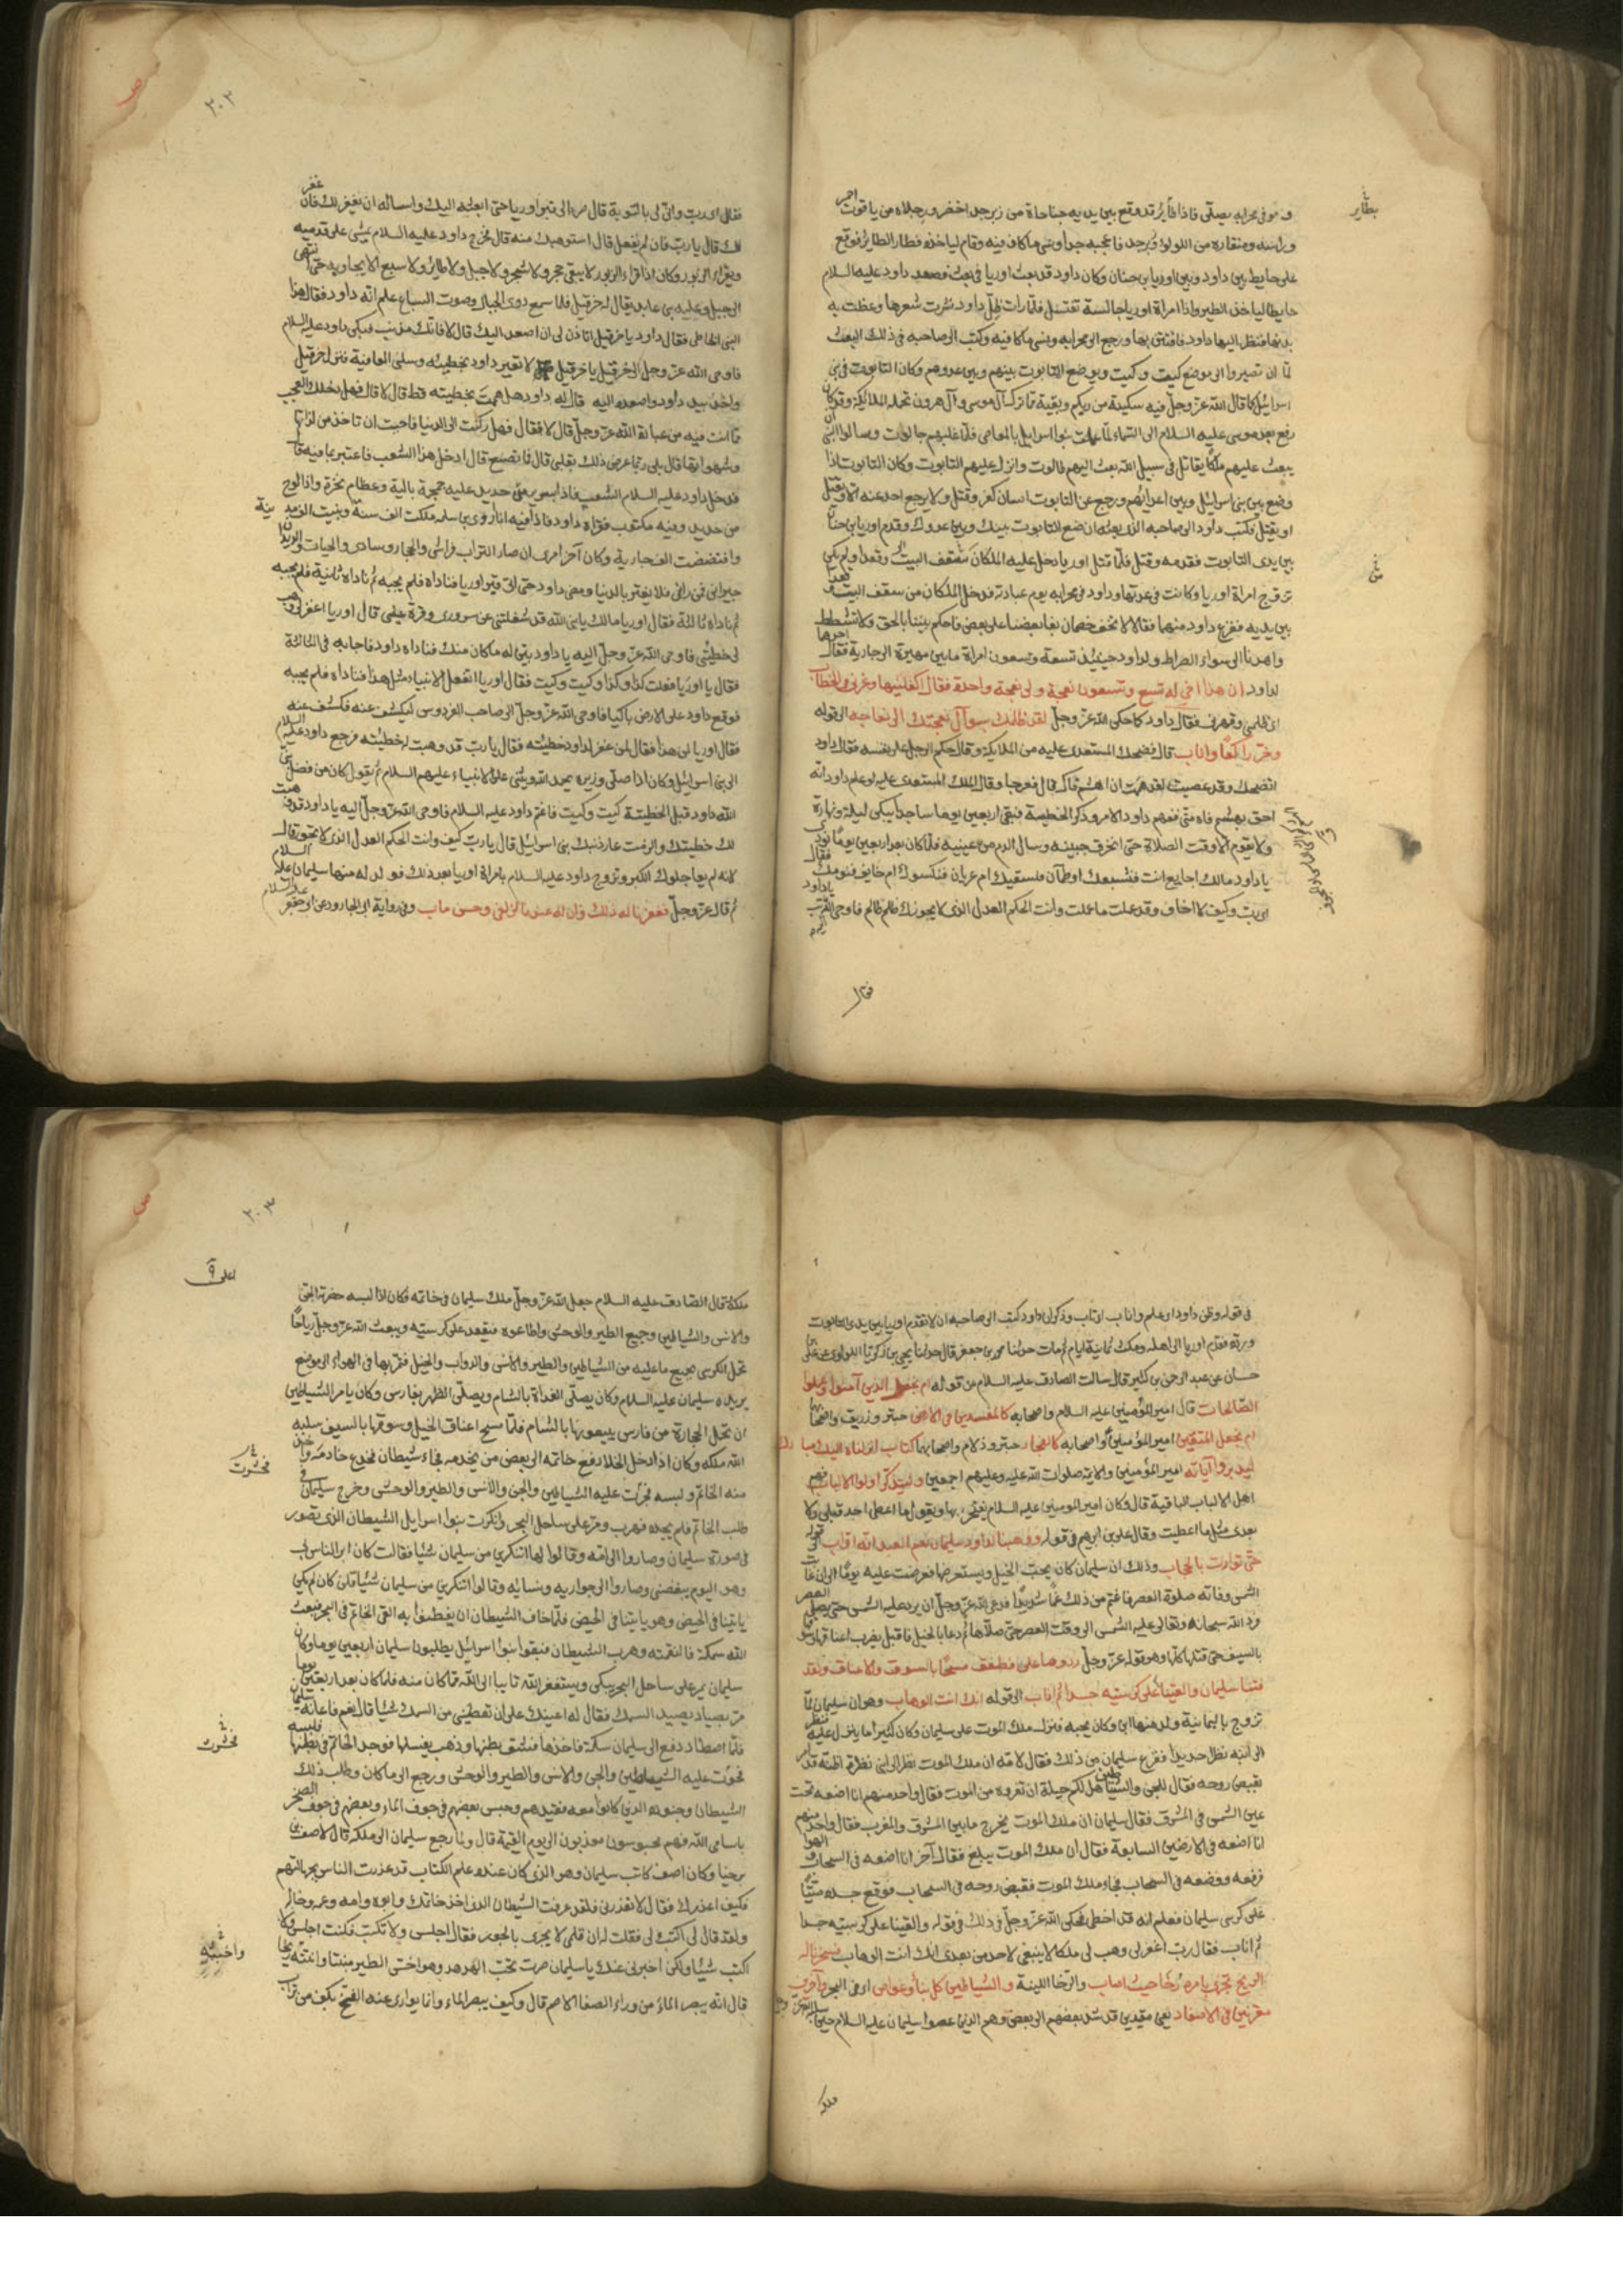 و هو فى محرابه يصلى فاذا طاير قد وقع بين يديه جناحاه من زبرجد اخضر ورجلاه من ياقوت احمر
وراسه ومنقاره من اللولو وزبرجد فاعجبه جدا ونسى ما كان فيه وقام لياخذه فطار الطاير فوقع
على حايط بين داود وبين اوريا بن حنان وكان داود قد بعث اوريا فى بعث فصعد داود عليه السلام
حايطا لياخذ الطير واذا امراة اوريا جالسة تغتسل فلما رات ظل داود نشرت شعرها وغطت به
بدنها فنظر اليها داود فافتتن بها ورجع الى محرابه ونسى ما كان فيه وكتب الى صاحبه فى ذلك البعث
لما ان تصيروا الى موضع كيت وكيت ويوضع التابوت بينهم وبين عدوهم وكان التابوت فى بنى
اسرائيل كما قال الله عز وجل فيه سكينة من ربكم وبقية مما ترك آل موسى وآل هرون تحمله الملائكة وقد كان
رفع بعد موسى عليه السلام الى السماء لما عملت بنوا اسرايل بالمعاصى فلما غلبهم جالوت وسالوا النبى ان
يبعث عليهم ملكا يقاتل فى سبيل الله بعث اليهم طالوت وانزل عليهم التابوت وكان التابوت اذا
وضع بين بنى اسرائيل وبين اعدائهم ورجع عن التابوت انسان كفر وقتل ولا يرجع احد عنه الا ويقتل
او يقتل فكتب داود الى صاحبه الذى بعثه ان ضع التابوت بينك وبين عدوك وقدم اوريا بن حنان
بين يدى التابوت فقدمه وقتل فلما قتل اوريا دخل عليه الملكان من سقف البيت وقعدا ولم يكن
تزوج امراة اوريا وكانت فى عدتها وداود فى محرابه يوم عبادته فدخل الملكان من سقف البيت وقعدا
بين يديه ففزع داود منهما فقالا لا تخف خصمان بغا بعضنا على بعض فاحكم بيننا بالحق ولا تشطط
واهدنا الى سواء الصراط ولداود حينئذ تسعة وتسعون امراة ما بين مهيرة الى جارية فقال احدهما
لداود ان هذا اخى له تسع وتسعون نعجة ولى نعجة واحدة فقال اكفلنيها وعزنى فى الخطاب
اى ظلمنى وقهرنى فقال داود كما حكى الله عز وجل لقد ظلمك بسوال نعجتك الى نعاجه الى قوله
وخر راكعا واناب قال فضحك المستعدى عليه من الملايكة وقال حكم الرجل على نفسه فقال داود
اتضحك وقد عصيت لقد هممت ان اهشم فاك قال فعرجا وقال الملك المستعدى عليه لو علم داود انه
احق بهشم فاه منى ففهم داود الامر وذكر الخطيئة فبقى اربعين يوما ساجدا يبكى ليله ونهاره
ولا يقوم الا وقت الصلاة حتى انخرق جبينه وسال الدم من عينيه فلما كان بعد اربعين يوما نودى
يا داود مالك اجايع انت فنشبعك او ظمآن فنسقيك ام عريان فنكسوك ام خايف فنومنك فقال
اى رب وكيف لا اخاف وقد عملت ما عملت وانت الحكم العدل الذى لا يجوزك ظلم ظالم فاوحى الله اليه
فقال
٢٠٢
فقال اى رب وانى لى بالتوبة قال صر الى قبر اوريا حتى ابعثه اليك واساله ان يغفر لك فان غفر
لك قال يا رب فان لم يفعل قال استوهبك منه قال فخرج داود عليه السلام يمشى على قدميه
ويقرا الزبور وكان اذا قراء الزبور لا يبقى حجر ولا شجر ولا جبل ولا طاير ولا سبع الا يجاوبه حتى انتهى
الى جبل وعليه نبى عابد يقال له حزقيل فلما سمع دوى الجبال وصوت السباع علم انه داود فقال هذا
النبى الخاطى فقال داود يا حزقيل اتاذن لى ان اصعد اليك قال لا فانك مذنب فبكى داود عليه السلام
فاوحى الله عز وجل الى حزقيل يا حزقيل لا تعير داود بخطيئته وسلنى العافية فنزل حزقيل
واخذ بيد داود واصعده اليه قال له داود هل هممت بخطيئته قط قال لا قال فهل دخلك العجب
مما انت فيه من عبادة الله عز وجل قال لا فقال فهل ركنت الى الدنيا فاحببت ان تاخذ من لذاتها
وشهواتها قال بلى ربما عرض ذلك بقلبى قال فما تصنع قال ادخل هذا الشعب فاعتبر بما فيه قال
فدخل داود عليه السلام الشعب فاذا بسرير من حديد عليه جمجمة بالية وعظام نخرة واذا لوح
من حديد وفيه مكتوب فقراه داود فاذا فيه انا اروى بن سلم ملكت الف سنة وبنيت الف مدينة
وافتضضت الف جارية وكان آخر امرى ان صار التراب فراشى والحجار وسادى والحيات والديدان
جيرانى فمن رانى فلا يغتر بالدنيا ومضى داود حتى اتى قبر اوريا فناداه فلم يجبه ثم ناداه ثانية فلم يجبه
ثم ناداه ثالثة فقال اوريا مالك يا نبى الله قد شغلتنى عن سرورى وقرة عينى قال اوريا اغفر لى وهب
لى خطيئتى فاوحى الله عز وجل اليه يا داود بين له ما كان منك فناداه داود فاجابه فى الثالثة
فقال يا اوريا فعلت كذا وكذا وكيت وكيت فقال اوريا اتفعل الانبياء مثل هذا فناداه فلم يجبه
فوقع داود على الارض باكيا فاوحى الله عز وجل الى صاحب الفردوس ليكشف عنه فكشف عنه
فقال اوريا لمن هذا فقال لمن غفر لداود خطيئته فقال يا رب قد وهبت له خطيئته فرجع داود عليه السلام
الى بنى اسرائيل وكان اذا صلى وزيره يحمد الله ويثنى على الانبياء عليهم السلام ثم يقول كان من فضل نبى
الله داود قبل الخطيئة كيت وكيت فاغتم داود عليه السلام فاوحى الله عز وجل اليه يا داود قد وهبت
لك خطيئتك والزمت عار ذنبك بنى اسرائيل قال يا رب كيف وانت الحكم العدل الذى لا تجور قال
لانه لم يعاجلوك النكير وتزوج داود عليه السلام بامراة اوريا بعد ذلك فولد له منها سليمان عليه السلام
ثم قال عز وجل فغفرنا له ذلك وان له عندنا لزلفى وحسن ماب وفى رواية ابى الجارود عن ابى جعفر عليه السلام
فى قوله وظن داود اى علم واناب اى تاب وذكر ان داود كتب الى صاحبه ان لا تقدم اوريا بين يدى التابوت
ورده فقدم اوريا الى اهله ومكث ثمانية ايام ثم مات حدثنا محمد بن جعفر قال حدثنا يحيى بن زكريا اللولوى عن على بن
حسان عن عبد الرحمن بن كثير قال سالت الصادق عليه السلام عن قوله ام نجعل الذين آمنوا وعملوا
الصالحات قال امير المؤمنين عليه السلام واصحابه كالمفسدين فى الارض حبتر وزريق واصحابهما
ام نجعل المتقين امير المؤمنين واصحابه كالفجار حبتر وذلام واصحابهما كتاب انزلناه اليك مبارك
ليدبروا آياته امير المؤمنين والائمة صلوات الله عليه وعليهم اجمعين وليتذكر اولوا الالباب فهم
اهل الالباب الباقية قال وكان امير المومنين عليه السلام يفتخر بها ويقول ما اعطى احد قبلى ولا
بعدى مثل ما اعطيت وقال على بن ابرهيم فى قوله ووهبنا لداود سليمان نعم العبد انه اواب الى قوله
حتى توارت بالحجاب وذلك ان سليمان كان يحب الخيل ويستعرضها فعرضت عليه يوما الى ان غابت
الشمس وفاته صلوة العصر فاغتم من ذلك غما شديدا فدعى الله عز وجل ان يرد عليه الشمس حتى يصلى العصر
فرد الله سبحانه وتعالى عليه الشمس الى وقت العصر حتى صلاها ثم دعا بالخيل فاقبل يضرب اعناقها وسوقها
بالسيف حتى قتلها كلها وهو قوله عز وجل ردوها على فطفق مسحا بالسوق والاعناق ولقد
فتنا سليمان والقينا على كرسيه جسدا ثم اناب الى قوله انك انت الوهاب وهو ان سليمان لما
تزوج باليمانية ولد منها ابن وكان يحبه فنزل ملك الموت على سليمان وكان كثيرا ما ينزل عليه فنظر
الى ابنه نظرا حديدا ففزع سليمان من ذلك فقال لامه ان ملك الموت نظر الى ابنى نظرة اظنه قد امر
بقبض روحه فقال للجن والشياطين هل لكم حيلة ان تفروه من الموت فقال واحد منهم انا اضعه تحت
عين الشمس فى المشرق فقال سليمان ان ملك الموت يخرج ما بين المشرق والمغرب فقال واحد منهم
انا اضعه فى الارضين السابعة فقال ان ملك الموت يبلغ فقال آخر انا اضعه فى السحاب والهوا
فرفعه ووضعه فى السحاب فجاء ملك الموت فقبض روحه فى السحاب فوقع جسده ميتا
على كرسى سليمان فعلم انه قد اخطى فحكى الله عز وجل فى ذلك فى قوله والقينا على كرسيه جسدا
ثم اناب فقال رب اغفر لى وهب لى ملكا لا ينبغى لاحد من بعدى انك انت الوهاب فسخرنا له
الريح تجرى بامره رخاء حيث اصاب والرخا اللينة والشياطين كل بناء وغواص اى فى البحر وآخرين
مقرنين فى الاصفاد يعنى مقيدين قد شد بعضهم الى بعض وهم الذين عصوا سليمان عليه السلام حين
ملكه
٢٠٣
ملكه وقال الصادق عليه السلام جعل الله عز وجل ملك سليمان فى خاتمه فكان اذا لبسه حضرته الجن
والانس والشياطين وجميع الطير والوحش واطاعوه فيقعد على كرسيه ويبعث الله عز وجل رياحا
تحمل الكرسى بجميع ما عليه من الشياطين والطير والانس والدواب والخيل فتمر بها فى الهواء الى موضع
يريده سليمان عليه السلام وكان يصلى الغداة بالشام ويصلى الظهر بفارس وكان يامر الشياطين
ان تحمل الحجارة من فارس يبيعونها بالشام فلما مسح اعناق الخيل وسوقها بالسيف سلبه
الله ملكه وكان اذا دخل الخلا دفع خاتمه الى بعض من يخدمه فجاء شيطان فخدع خادمه واخذ
منه الخاتم ولبسه فخرت عليه الشياطين والجن والانس والطير والوحش وخرج سليمان فى
طلب الخاتم فلم يجده فهرب ومر على ساحل البحر وانكرت بنوا اسرايل الشيطان الذى تصور
فى صورة سليمان وصاروا الى امه وقالوا لها اتنكرين من سليمان شيئا فقالت كان ابر الناس بى
وهو اليوم يبغضنى وصاروا الى جواريه ونسائه وقالوا اتنكرين من سليمان شيئا قلن كان لم يكن
ياتينا فى الحيض وهو ياتينا فى الحيض فلما خاف الشيطان ان يفطنوا به القى الخاتم فى البحر فبعث
الله سمكة فالتقمته وهرب الشيطان فبقوا بنوا اسرائيل يطلبون سليمان اربعين يوما وكان
سليمان يمر على ساحل البحر يبكى ويستغفر الله تايبا الى الله مما كان منه فلما كان بعد اربعين يوما
مر بصياد يصيد السمك فقال له اعينك على ان تعطينى من السمك شيئا قال نعم فاعانه سليمان
فلما اصطاد دفع الى سليمان سمكة فاخذها فشق بطنها وذهب يغسلها فوجد الخاتم فى بطنها فلبسه
فخرت عليه الشياطين والجن والانس والطير والوحش ورجع الى ما كان وطلب ذلك
الشيطان وجنوده الذين كانوا معه فقيدهم وحبس بعضهم فى جوف الماء وبعضهم فى جوف الصخر
باسامى الله فهم محبوسون معذبون الى يوم القيمة قال ولما رجع سليمان الى ملكه قال لاصف بن
برخيا وكان اصف كاتب سليمان وهو الذى كان عنده علم الكتاب قد عذرت الناس بجهالتهم
فكيف اعذرك فقال لا تعذرنى فلقد عرفت الشيطان الذى اخذ خاتمك وابوه وامه وعمه وخاله
ولقد قال لى اكتب لى فقلت له ان قلمى لا يجرى بالجور فقال اجلس ولا تكتب فكنت اجلس ولا
اكتب شيئا ولكن اخبرنى عنك يا سليمان صرت تحب الهدهد وهو اخس الطير منبتا وانتنه ريحا
قال انه يبصر الماء من وراء الصفا الاصم قال وكيف يبصر الماء وانما يوارى عنه الفخ بكف من تراب